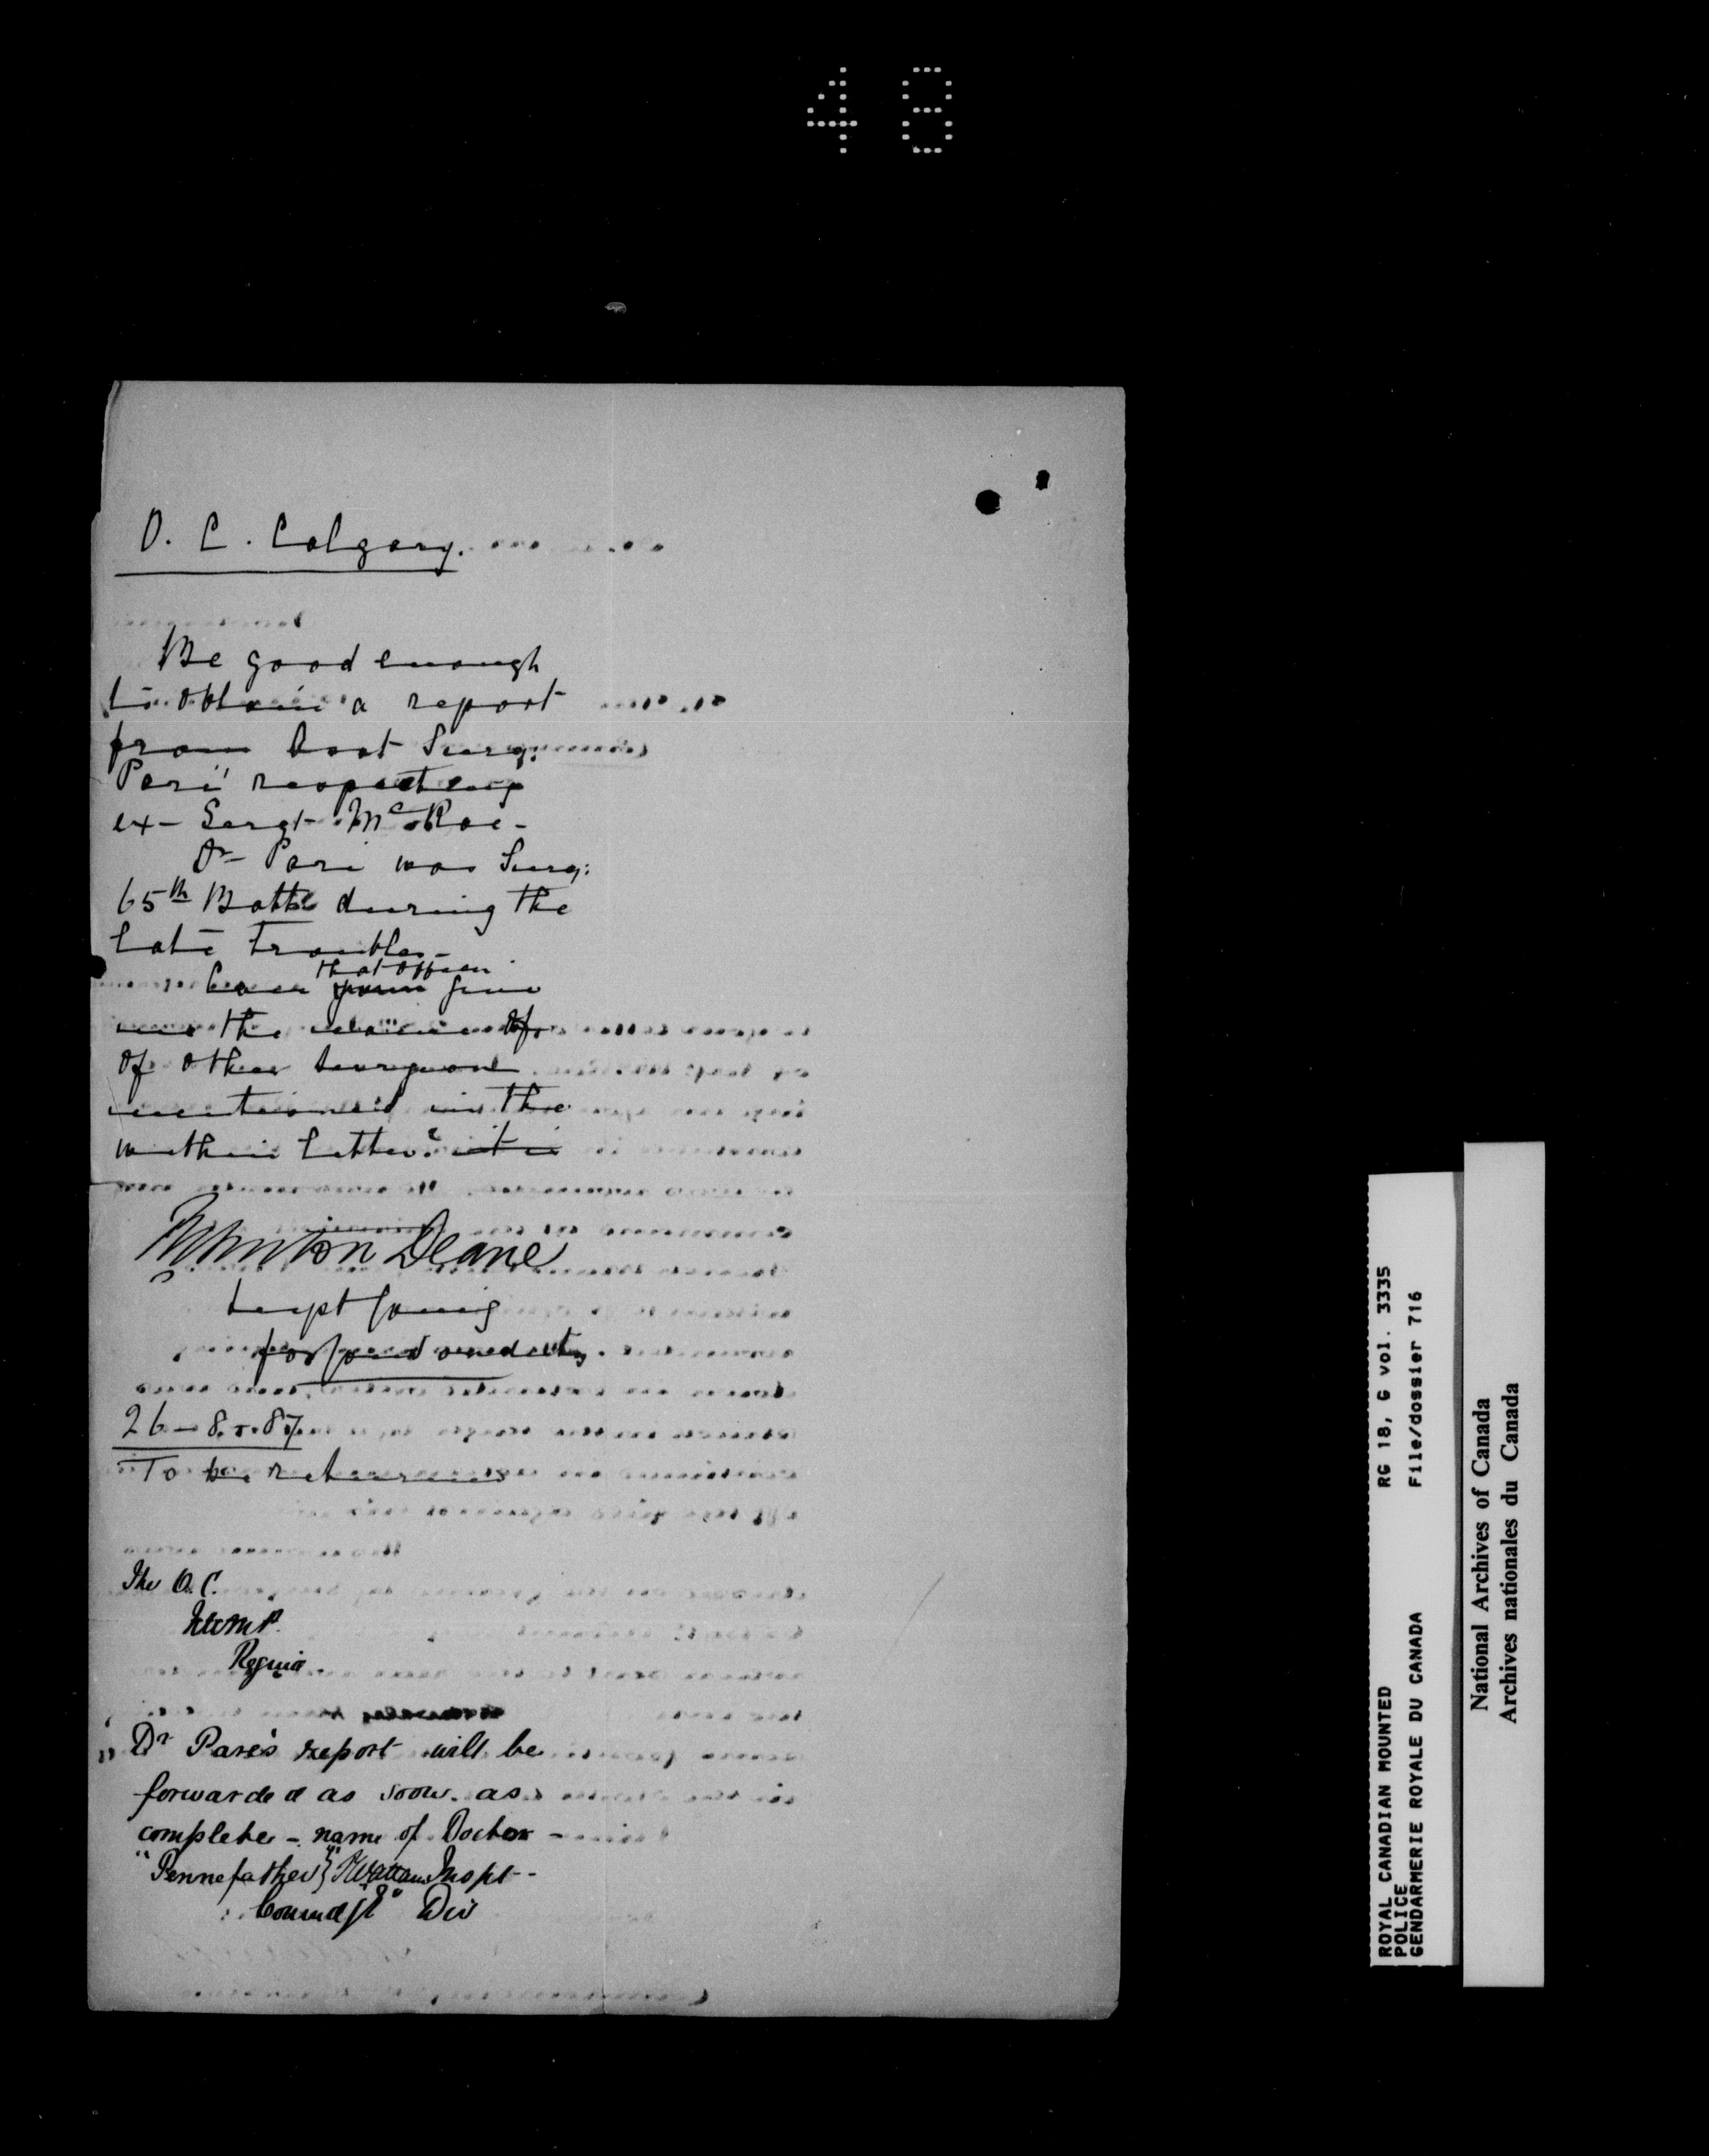 48
O. C. Calgary.
Be good enough
to obtain a report
from Asst Surg:
Paré respecting
ex-Sergt McRae -
Dr Paré was Surg:
65th Battn during the
late troubles -
that officer
Can your give
me the name of
of other surgeon
mentioned in the
within letter?
Burton Deane
Supt Comg
for Comd on duty
26-8-87
To be returned
The O. C.
N.W.M.P.
Regina.
Dr Paré's report will be
forwarded as soon as
complete - name of Doctor -
"Pennefather" Inspt -
Commdg "E" Div
ROYAL CANADIAN MOUNTED RG 18, G vol. 3335
POLICE
GENDARMERIE ROYALE DU CANADA File/dossier 716
National Archives of Canada
Archives nationales du Canada